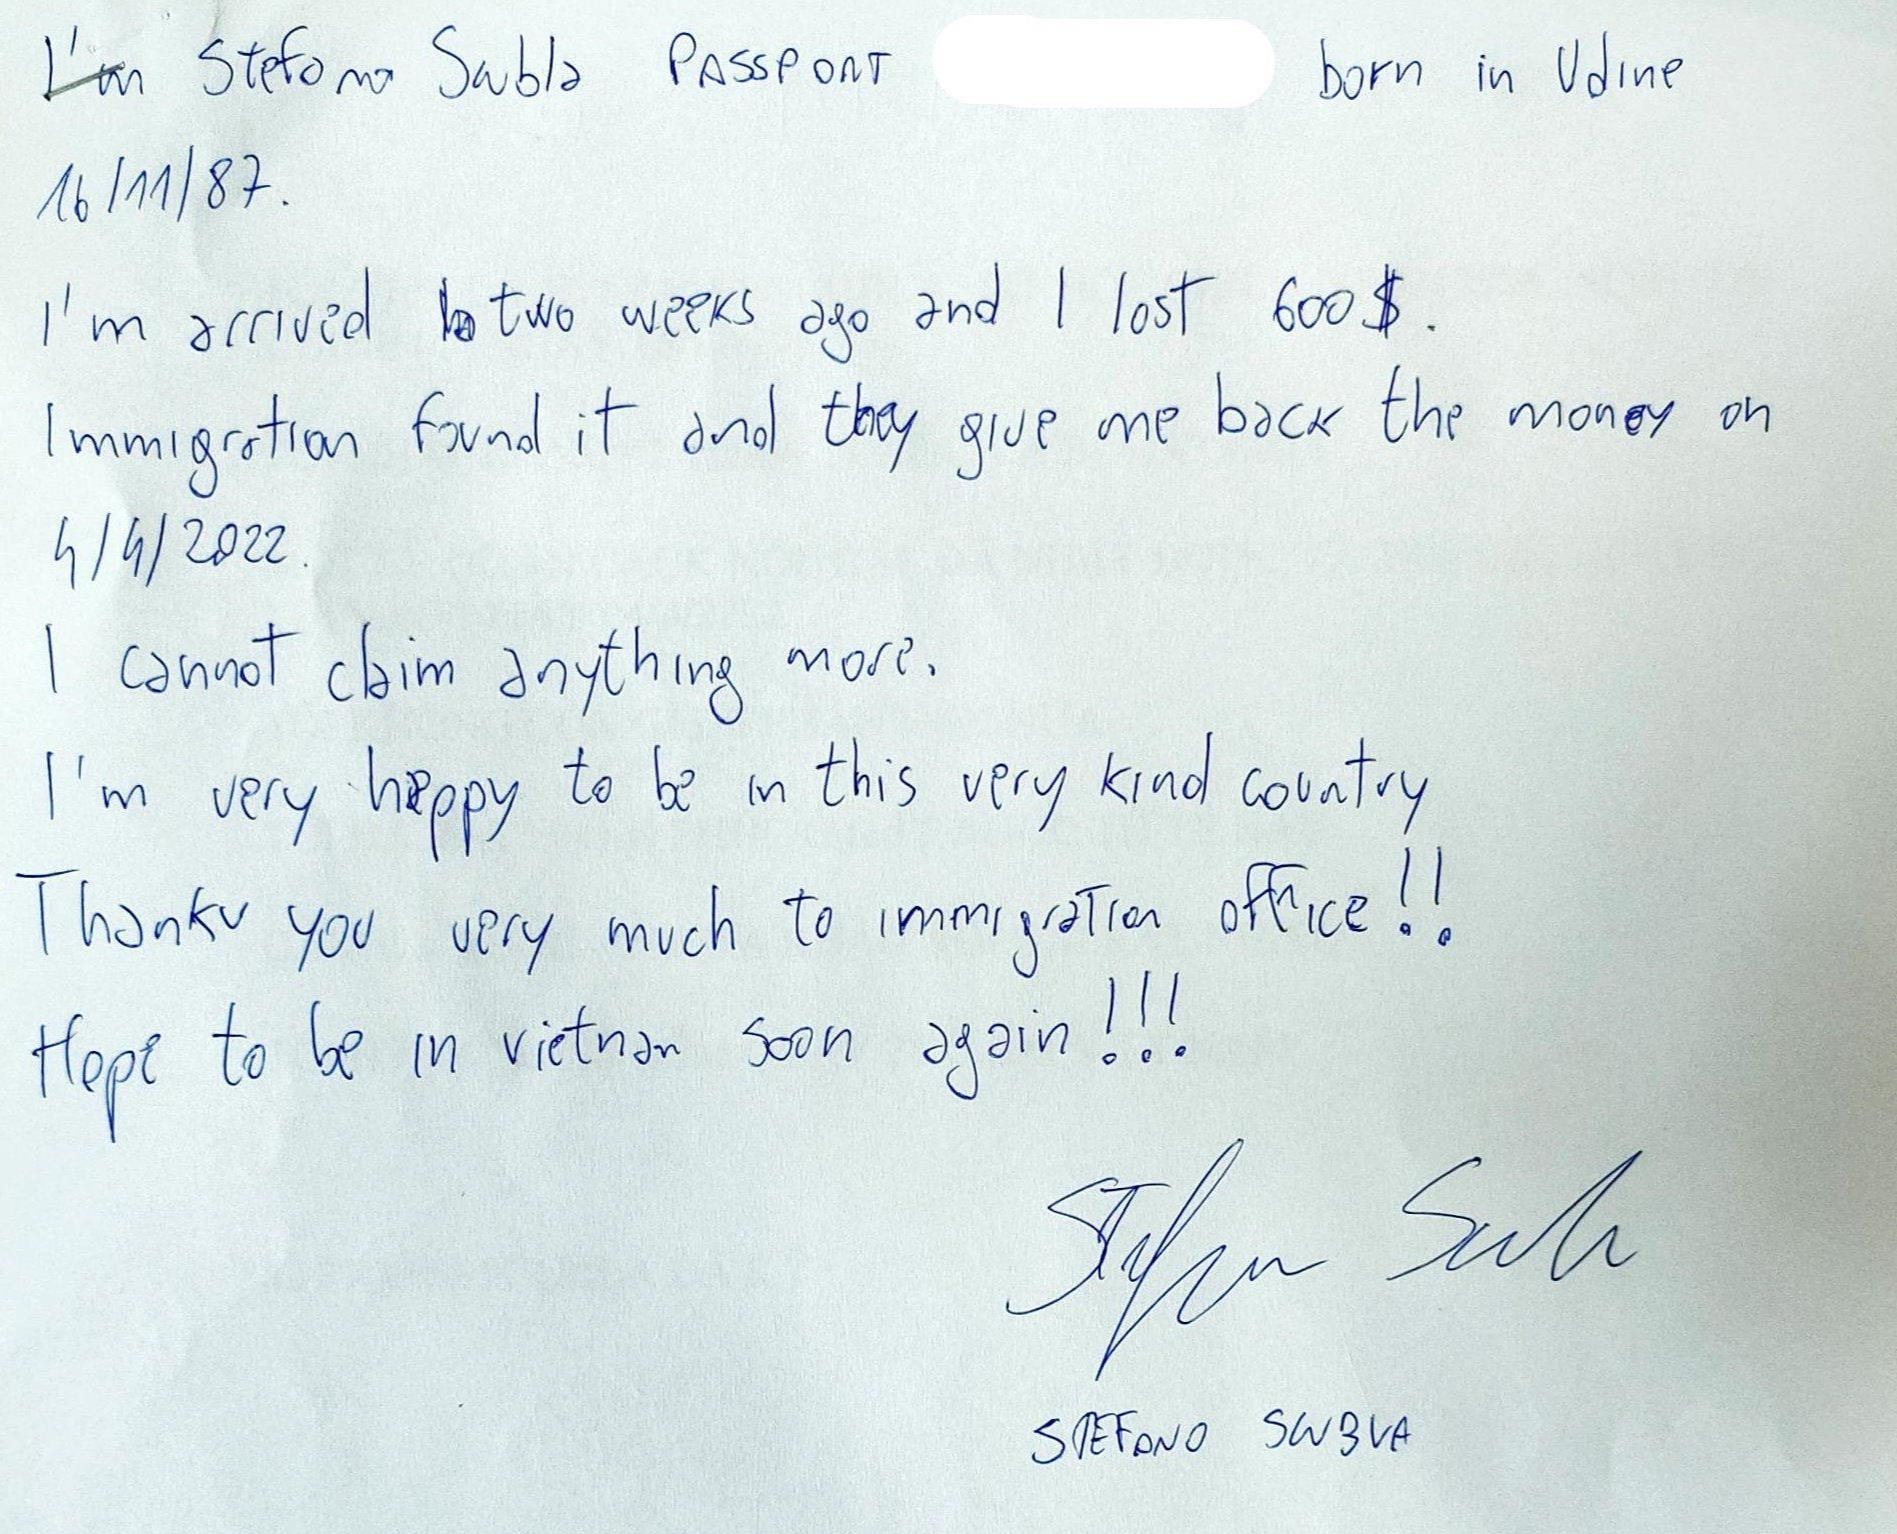 I'm Stefano Scubla PASSPORT born in Udine
16/11/87.
I'm arrived two weeks ago and I lost 600$.
Immigration found it and they give me back the money on
4/4/2022.
I cannot claim anything more.
I'm very happy to be in this very kind country
Thanku you very much to immigration office!!
Hope to be in vietnam soon again!!!
STEFANO SCUBLA